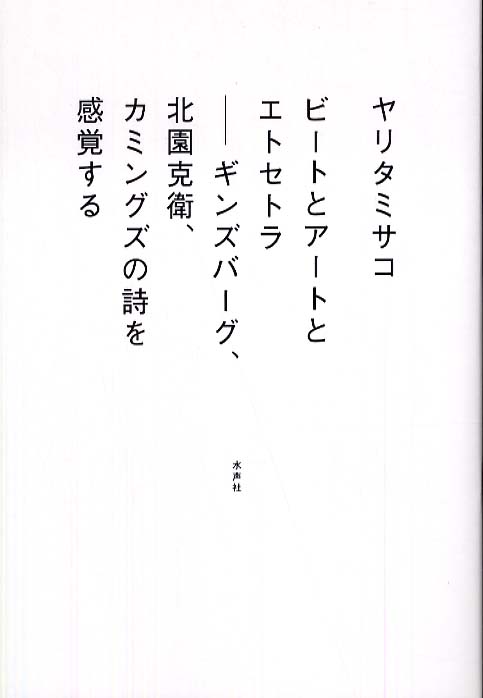 ヤリタミサコ
ビートとアートと
エトセトラ
──ギンズバーグ、
北園克衛、
カミングズの詩を
感覚する
水声社